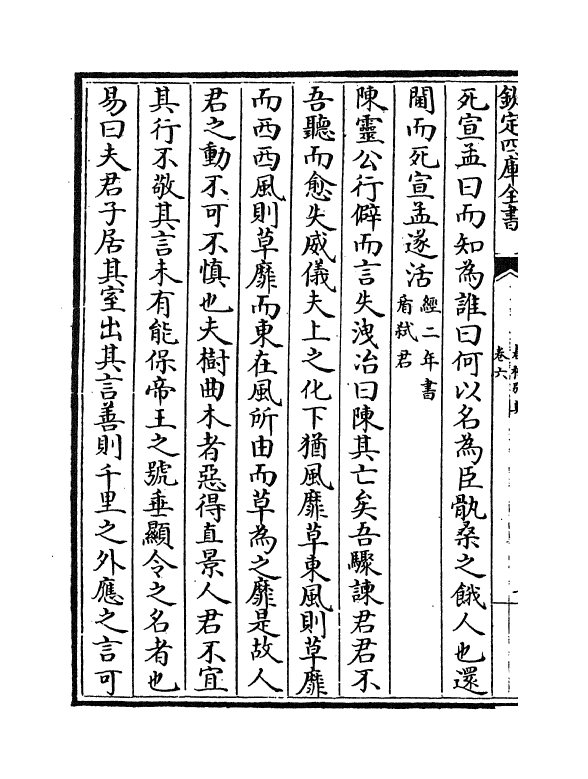 欽定四庫全書
卷六
死宣孟曰而知為誰曰何以名為臣骫桑之餓人也還
鬭而死宣孟遂活經二年書盾弑君
陳靈公行僻而言失洩冶曰陳其亡矣吾驟諫君君不
吾聽而愈失威儀夫上之化下猶風靡草東風則草靡
而西西風則草靡而東在風所由而草為之靡是故人
君之動不可不慎也夫樹曲木者惡得直景人君不宜
其行不敬其言未有能保帝王之號垂顯令之名者也
易曰夫君子居其室出其言善則千里之外應之言可